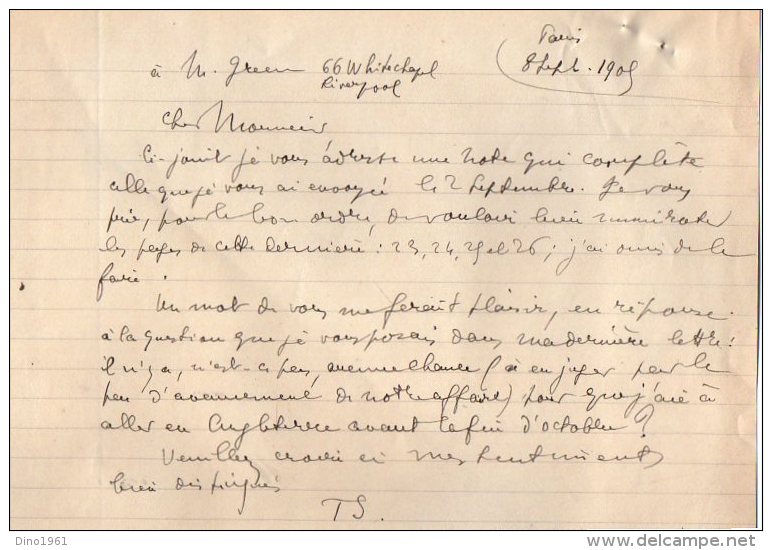 Paris
à M. Green 66 Whitechapel 8 Sept. 1905
Liverpool
Cher Monsieur
Ci-joint je vous adresse une note qui complète
celle que je vous ai envoyée le 2 Septembre. Je vous
prie, pour le bon ordre, de vouloir bien numéroter
les pages de cette dernière : 23, 24, 25 et 26 ; j'ai omis de le
faire.
Un mot de vous me ferait plaisir, en réponse
à la question que je vous posais dans ma dernière lettre :
il n'y a, n'est-ce pas, aucune chance (à en juger par le
peu d'avancement de notre affaire) pour que j'aie à
aller en Angleterre avant la fin d'octobre ?
Veuillez croire à mes sentiments
bien distingués
TS.
Dino1961
delcampe.net